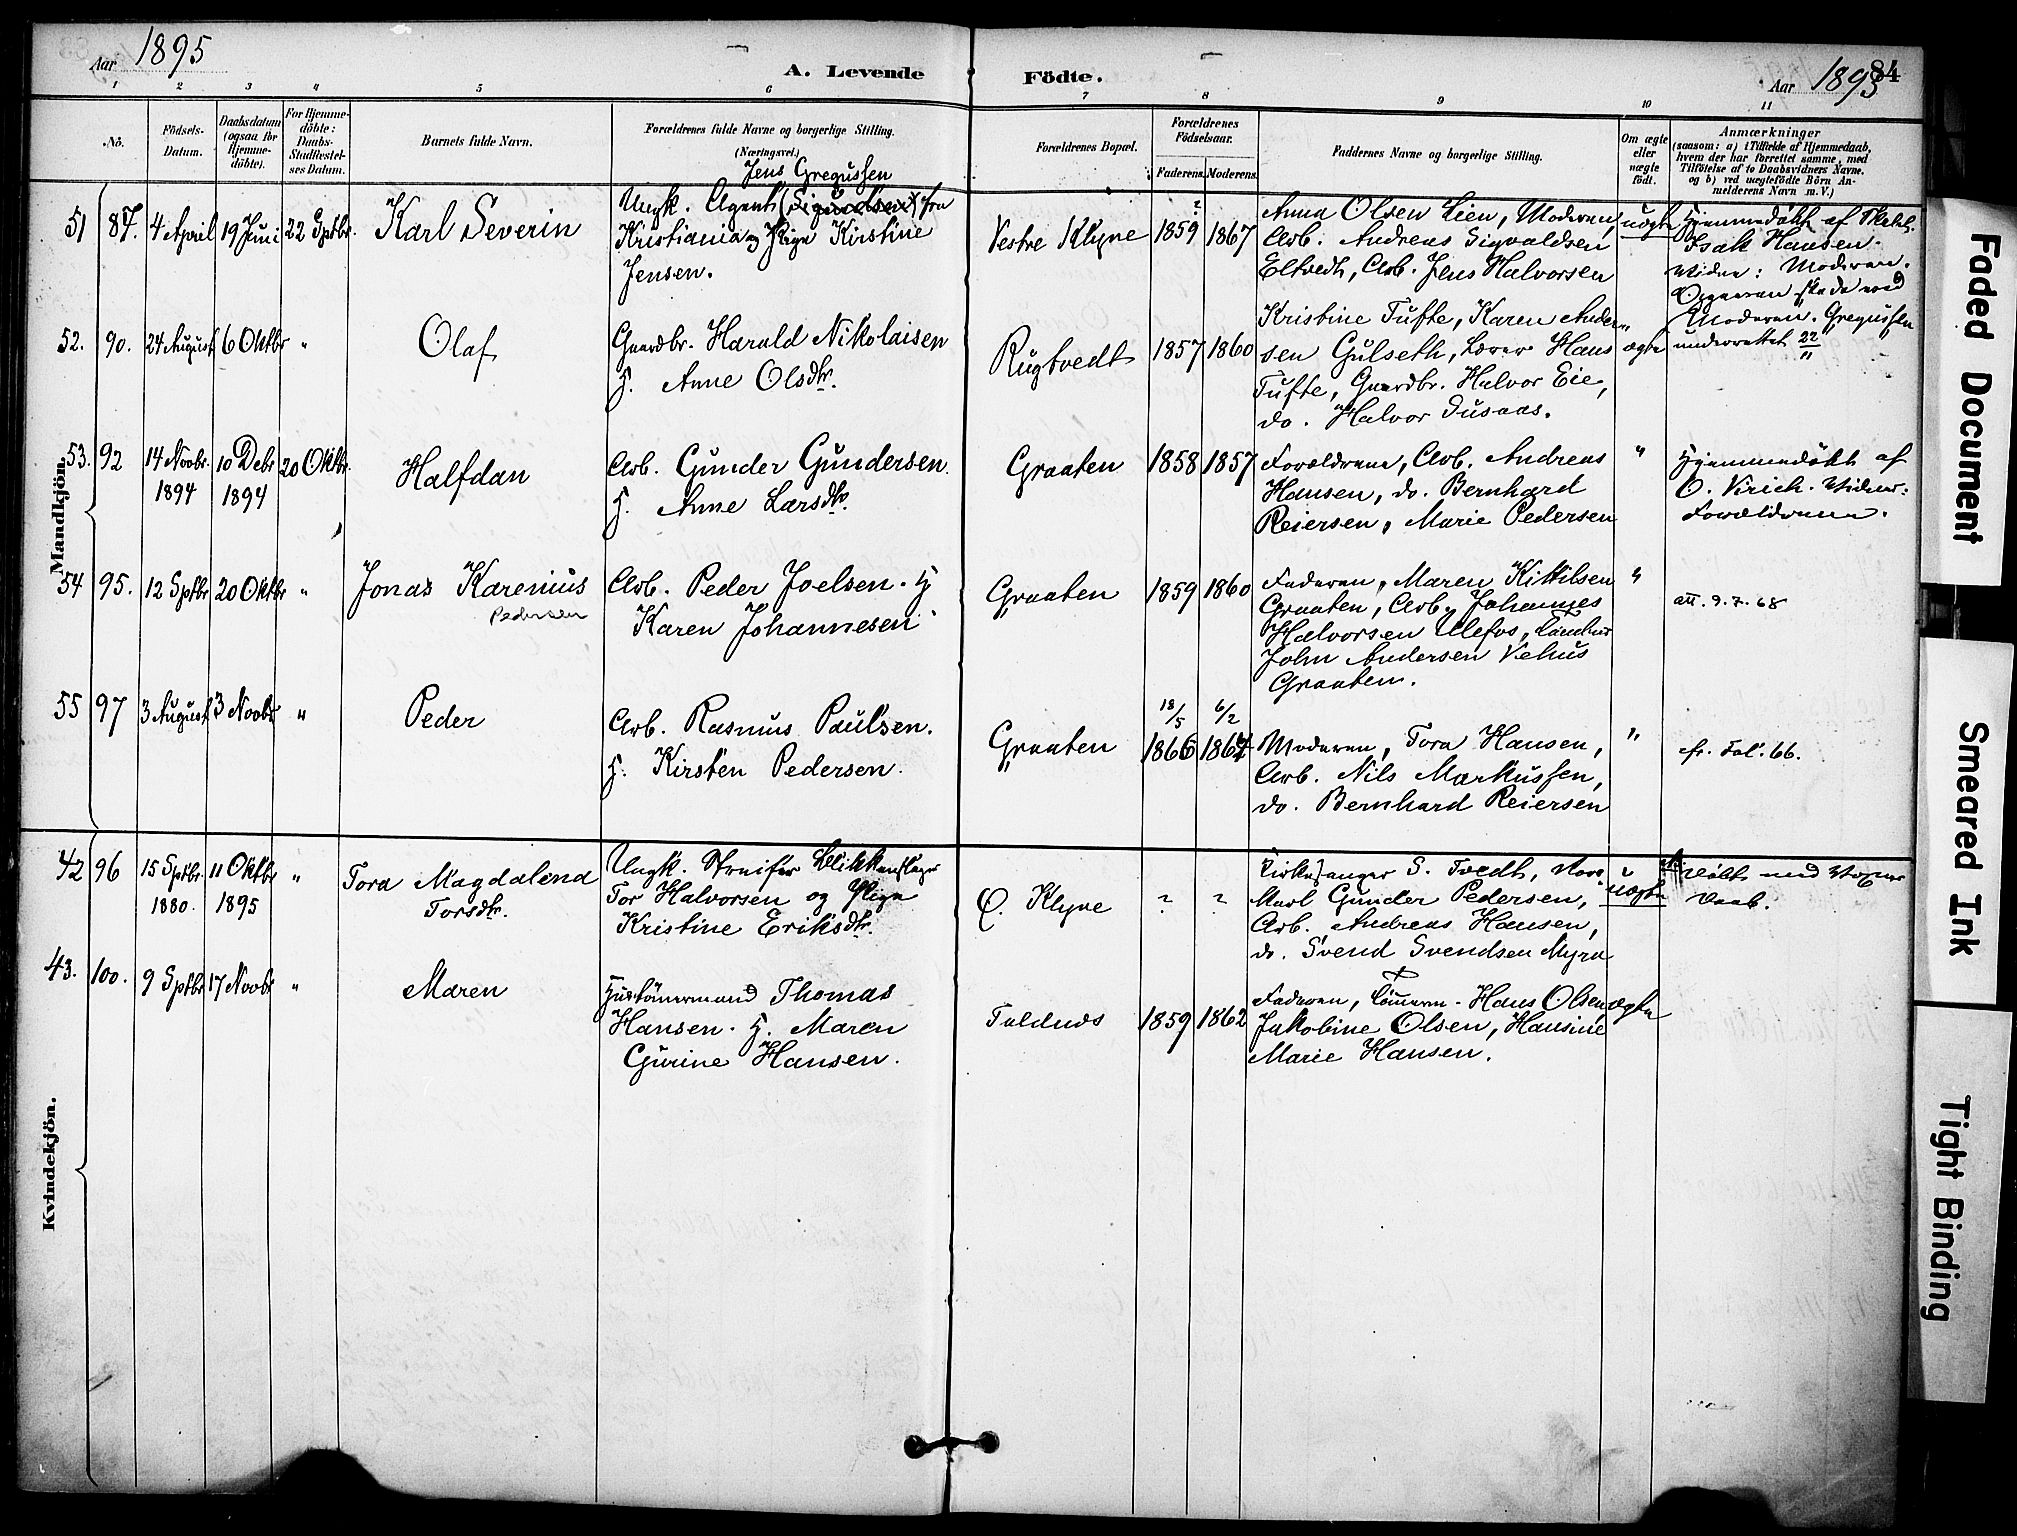 Aar 1895
A. Levende Födte.
Aar 1895
84
1 2 3 4 5 6 7 8 9 10 11
No.
Födsels-
Datum.
Daabsdatum
(ogsaa for
Hjemme-
döbte).
For Hjemme-
döbte:
Daabs-
Stadfæstel-
ses Datum.
Barnets fulde Navn.
Forældrenes fulde Navne og borgerlige Stilling.
(Næringsvei.)
Forældrenes Bopæl.
Forældrenes
Födselsaar.
Faderens. Moderens.
Faddernes Navne og borgerlige Stilling.
Om ægte
eller
uægte
födt.
Anmærkninger
(saasom: a) i Tilfælde af Hjemmedaab,
hvem der har forrettet samme, med
Tilföielse af to Daabsvidners Navne,
og b) ved uægtefödte Börn An-
melderens Navn m. V.)
Mandkjön.
51 87. 4 April 19 Juni 22 Sptbr. Karl Severin
Jens Gregussen
Ungk. Agent fra
Kristiania og Pige Kirstine
Jensen.
Vestre Klyve 1859 ? 1867
Anna Olsen Lien, Moderen,
Arb. Andreas Sigvaldsen
Eltvedt, Arb. Jens Halvorsen
uægte
Hjemmedøbt af
Isak Hansen.
Vidne: Moderen.
Opgaven skede ved
Moderen. Gregussen
underrettet 22/11
52. 90. 24 August 6 Oktbr " Olaf
Gaardbr. Harald Nikolaisen
H. Anne Olsdtr.
Rugtvedt 1857 1860
Kristine Tufte, Karen Ander-
sen Gulseth, Lærer Hans
Tufte, Gaardbr. Halvor Eie,
do. Halvor Dusaas.
ægte
53. 92 14 Novbr. 1894 10 Debr 1894 20 Oktbr. Halfdan
Arb. Gunder Gundersen.
H. Anne Larsdtr.
Graaten 1858 1857
Forældrene, Arb. Andreas
Hansen, do. Bernhard
Reiersen, Marie Pedersen
"
Hjemmedøbt af
O. Virich. Vidner:
Forældrene.
54 95. 12 Sptbr 20 Oktbr " Jonas Karenius
Pedersen
Arb. Peder Joelsen. H
Karen Johannesen
Graaten 1859 1860
Faderen, Maren Kittilsen
Graaten, Arb. Johannes
Halvorsen Ulefos,
John Andersen Vehus
Graaten.
"
att. 9.7.68
55 97 3 August 3 Novbr " Peder
Arb. Rasmus Paulsen.
H. Kirsten Pedersen.
Graaten 18/5 1866 6/2 1867
Moderen, Tora Hansen,
Arb. Nils Markussen,
do. Bernhard Reiersen
"
cfr. Fol. 66.
Kvindekjön.
42 96 15 Sptbr. 1880. 11 Oktbr 1895 " Tora Magdalena
Torsdtr.
Ungk. Streifer Blikkenslager
Tor Halvorsen og Pige
Kristine Eriksdtr.
Ø. Klyve ? ?
Kirkesanger S. Tvedt,
Gunder Pedersen,
Arb. Andreas Hansen,
do. Svend Svendsen Myra
uægte
døbt ved Voxen
Daab.
43. 100. 9 Sptbr 17 Novbr " Maren
Hustömermand Thomas
Hansen. H. Maren
Gurine Hansen.
Faldnes 1859 1862
Faderen, Tömerm. Hans Olsen
Jakobine Olsen, Hansine
Marie Hansen.
ægte
Faded Document
Smeared Ink
Tight Binding